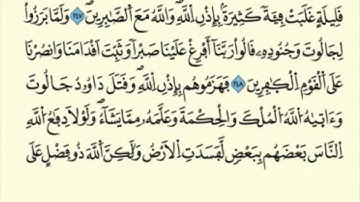 قَلِيلَةٍ غَلَبَتْ فِئَةً كَثِيرَةً بِإِذْنِ ٱللَّهِ وَٱللَّهُ مَعَ ٱلصَّٰبِرِينَ ٢٤٧ وَلَمَّا بَرَزُوا۟
لِجَالُوتَ وَجُنُودِهِۦ قَالُوا۟ رَبَّنَآ أَفْرِغْ عَلَيْنَا صَبْرًا وَثَبِّتْ أَقْدَامَنَا وَٱنصُرْنَا
عَلَى ٱلْقَوْمِ ٱلْكَٰفِرِينَ ٢٤٨ فَهَزَمُوهُم بِإِذْنِ ٱللَّهِ وَقَتَلَ دَاوُۥدُ جَالُوتَ
وَءَاتَىٰهُ ٱللَّهُ ٱلْمُلْكَ وَٱلْحِكْمَةَ وَعَلَّمَهُۥ مِمَّا يَشَآءُ وَلَوْلَا دِفَٰعُ ٱللَّهِ
ٱلنَّاسَ بَعْضَهُم بِبَعْضٍ لَّفَسَدَتِ ٱلْأَرْضُ وَلَٰكِنَّ ٱللَّهَ ذُو فَضْلٍ عَلَى